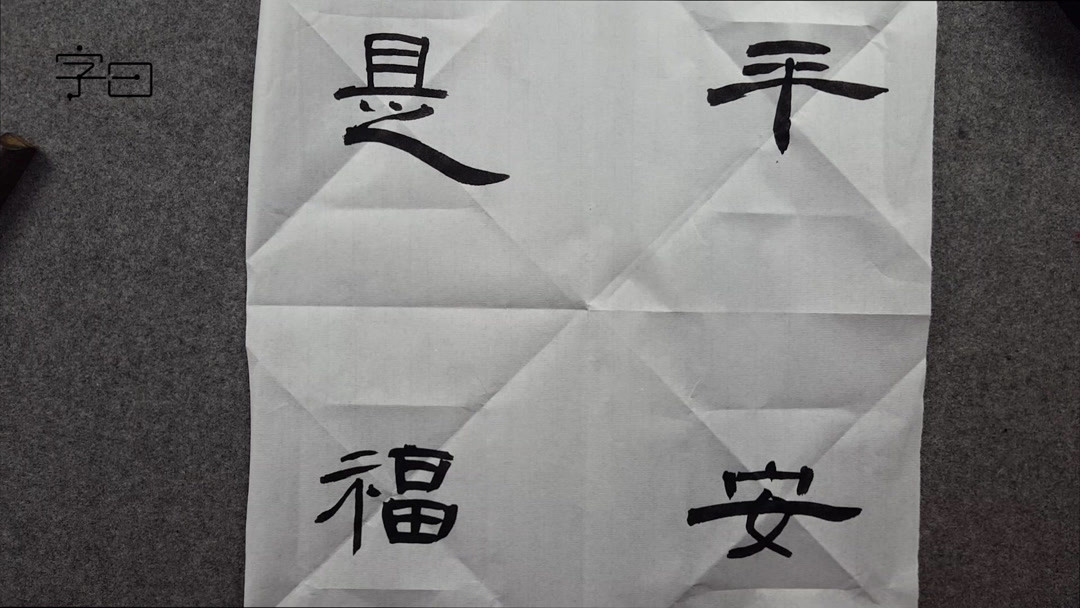 字曰
平安
是福